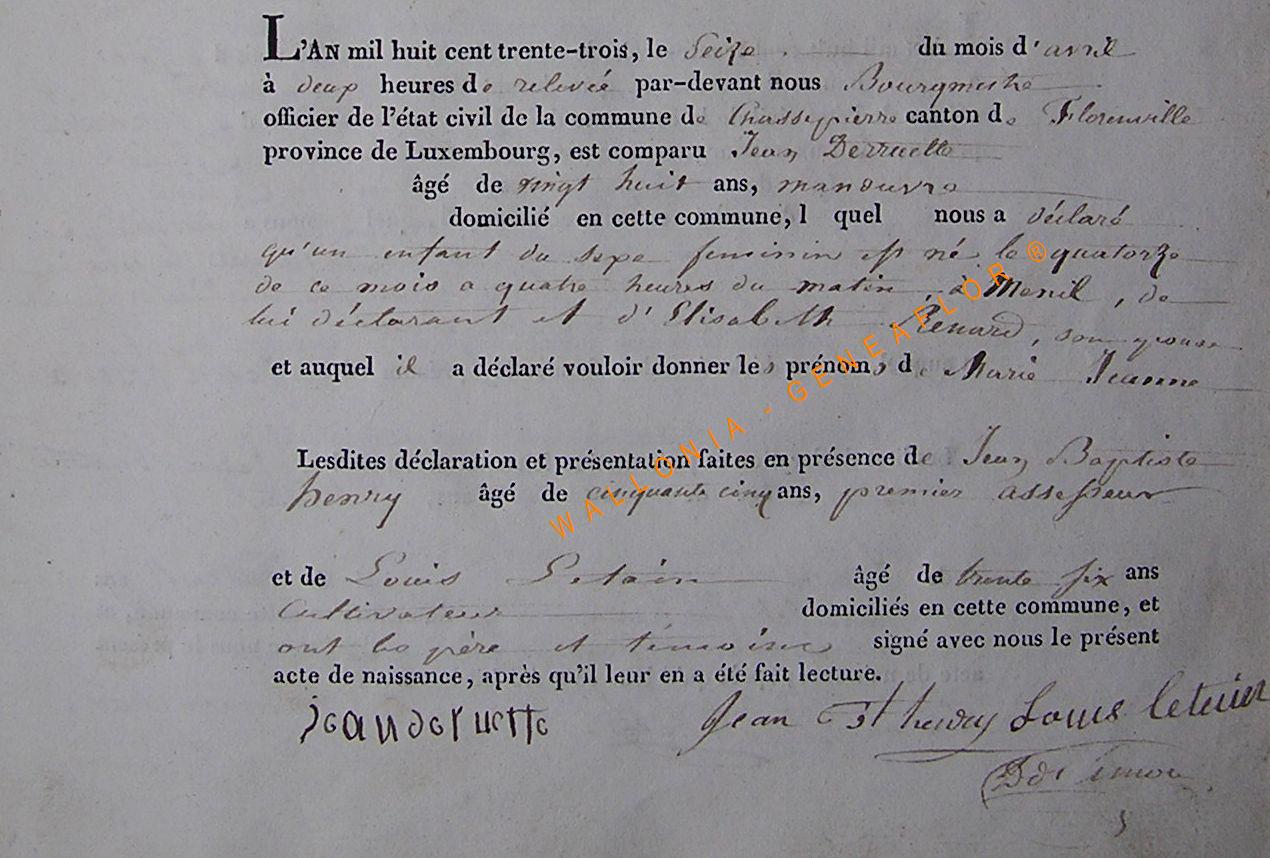 L'AN mil huit cent trente-trois, le Seize du mois d'avril
à deux heures de relevée par-devant nous Bourgmestre
officier de l'état civil de la commune de Chassepierre canton de Florenville
province de Luxembourg, est comparu Jean Derruette
âgé de vingt huit ans, manouvre
domicilié en cette commune, l quel nous a déclaré
qu'un enfant du sexe feminin est né le quatorze
de ce mois a quatre heures du matin, à Menil, de
lui déclarant et d'Elisabeth Renard, son epouse
et auquel il a déclaré vouloir donner les prénoms de Marie Jeanne
Lesdites déclaration et présentation faites en présence de Jean Baptiste
henry âgé de cinquante cinq ans, premier assesseur
et de Louis Letain âgé de trente six ans
Cultivateur domiciliés en cette commune, et
ont les père et témoins signé avec nous le présent
acte de naissance, après qu'il leur en a été fait lecture.
jeanderuette Jean Bt henry Louis
WALLONIA - GENEAFLOR ®